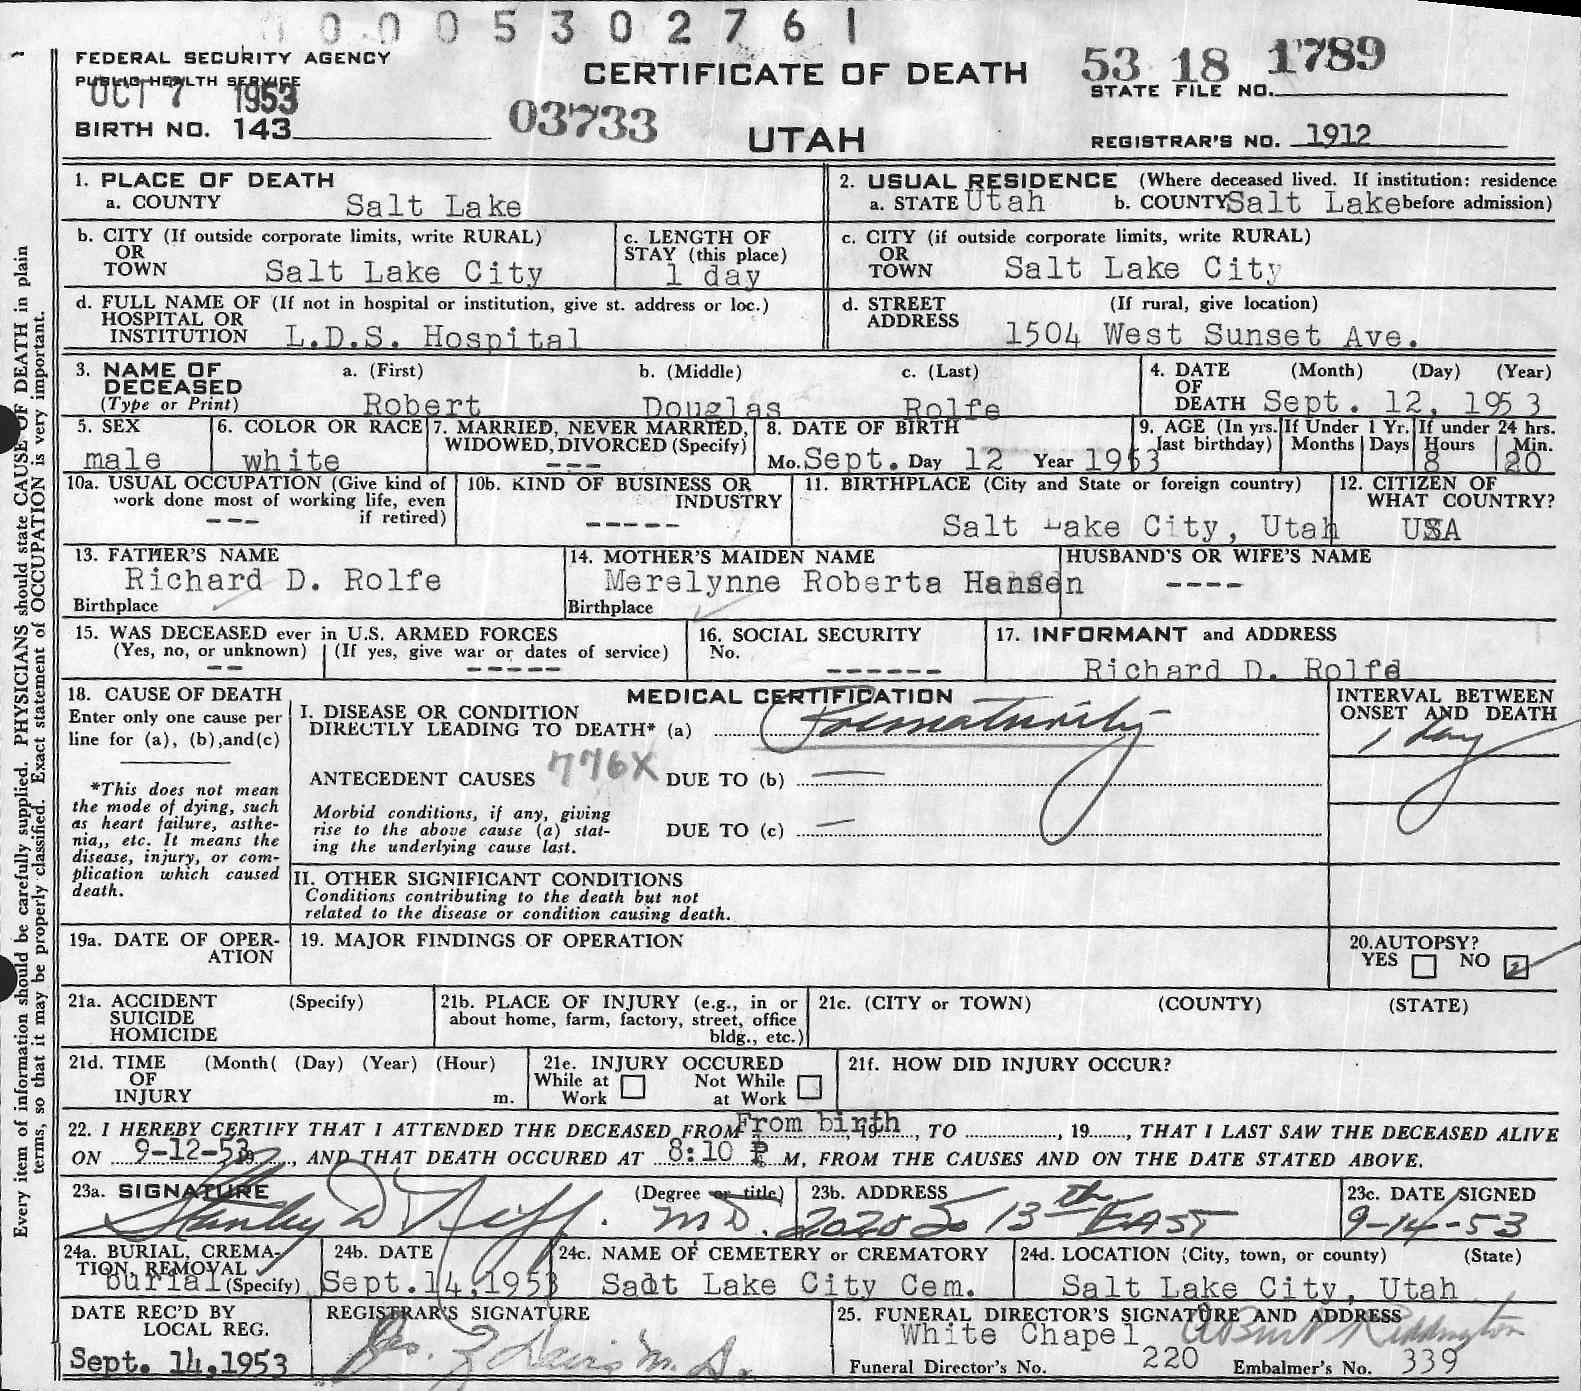 0 0 0 5 3 0 2 7 6 1
FEDERAL SECURITY AGENCY
PUBLIC HEALTH SERVICE
OCT 7 1953
BIRTH NO. 143
03733
CERTIFICATE OF DEATH
UTAH
53 18 1789
STATE FILE NO.
REGISTRAR'S NO. 1912
1. PLACE OF DEATH
a. COUNTY Salt Lake
2. USUAL RESIDENCE (Where deceased lived. If institution: residence
a. STATE Utah b. COUNTY Salt Lake before admission)
b. CITY (If outside corporate limits, write RURAL)
OR
TOWN Salt Lake City
c. LENGTH OF
STAY (this place)
1 day
c. CITY (if outside corporate limits, write RURAL)
OR
TOWN Salt Lake City
d. FULL NAME OF (If not in hospital or institution, give st. address or loc.)
HOSPITAL OR
INSTITUTION L.D.S. Hospital
d. STREET (If rural, give location)
ADDRESS 1504 West Sunset Ave.
3. NAME OF a. (First) b. (Middle) c. (Last)
DECEASED
(Type or Print) Robert Douglas Rolfe
4. DATE (Month) (Day) (Year)
OF
DEATH Sept. 12, 1953
5. SEX
male
6. COLOR OR RACE
white
7. MARRIED, NEVER MARRIED,
WIDOWED, DIVORCED (Specify)
---
8. DATE OF BIRTH
Mo. Sept. Day 12 Year 1953
9. AGE (In yrs. If Under 1 Yr. If under 24 hrs.
last birthday) Months Days Hours Min.
8 20
10a. USUAL OCCUPATION (Give kind of
work done most of working life, even
--- if retired)
10b. KIND OF BUSINESS OR
INDUSTRY
-----
11. BIRTHPLACE (City and State or foreign country)
Salt Lake City, Utah
12. CITIZEN OF
WHAT COUNTRY?
USA
13. FATHER'S NAME
Richard D. Rolfe
Birthplace
14. MOTHER'S MAIDEN NAME
Merelynne Roberta Hansen
Birthplace
HUSBAND'S OR WIFE'S NAME
----
15. WAS DECEASED ever in U.S. ARMED FORCES
(Yes, no, or unknown) (If yes, give war or dates of service)
-- -----
16. SOCIAL SECURITY
No.
------
17. INFORMANT and ADDRESS
Richard D. Rolfe
18. CAUSE OF DEATH
Enter only one cause per
line for (a), (b), and (c)
*This does not mean
the mode of dying, such
as heart failure, asthe-
nia,, etc. It means the
disease, injury, or com-
plication which caused
death.
MEDICAL CERTIFICATION
I. DISEASE OR CONDITION
DIRECTLY LEADING TO DEATH* (a) Prematurity
ANTECEDENT CAUSES 776X DUE TO (b) —
Morbid conditions, if any, giving
rise to the above cause (a) stat- DUE TO (c) —
ing the underlying cause last.
INTERVAL BETWEEN
ONSET AND DEATH
1 day
II. OTHER SIGNIFICANT CONDITIONS
Conditions contributing to the death but not
related to the disease or condition causing death.
19a. DATE OF OPER-
ATION
19. MAJOR FINDINGS OF OPERATION
20. AUTOPSY?
YES NO
21a. ACCIDENT (Specify)
SUICIDE
HOMICIDE
21b. PLACE OF INJURY (e.g., in or
about home, farm, factory, street, office
bldg., etc.)
21c. (CITY or TOWN) (COUNTY) (STATE)
21d. TIME (Month( (Day) (Year) (Hour)
OF
INJURY m.
21e. INJURY OCCURED
While at Not While
Work at Work
21f. HOW DID INJURY OCCUR?
22. I HEREBY CERTIFY THAT I ATTENDED THE DECEASED FROM From birth, 19, TO , 19, THAT I LAST SAW THE DECEASED ALIVE
ON 9-12-53, AND THAT DEATH OCCURED AT 8:10 P M, FROM THE CAUSES AND ON THE DATE STATED ABOVE.
23a. SIGNATURE (Degree or title)
Stanley D Neff. M.D.
23b. ADDRESS
2020 So 13th EAST
23c. DATE SIGNED
9-14-53
24a. BURIAL, CREMA-
TION, REMOVAL
burial (Specify)
24b. DATE
Sept.14,1953
24c. NAME OF CEMETERY or CREMATORY
Salt Lake City Cem.
24d. LOCATION (City, town, or county) (State)
Salt Lake City, Utah
DATE REC'D BY
LOCAL REG.
Sept. 14,1953
REGISTRAR'S SIGNATURE
25. FUNERAL DIRECTOR'S SIGNATURE AND ADDRESS
White Chapel
Funeral Director's No. 220 Embalmer's No. 339
Every item of information should be carefully supplied. PHYSICIANS should state CAUSE OF DEATH in plain
terms, so that it may be properly classified. Exact statement of OCCUPATION is very important.